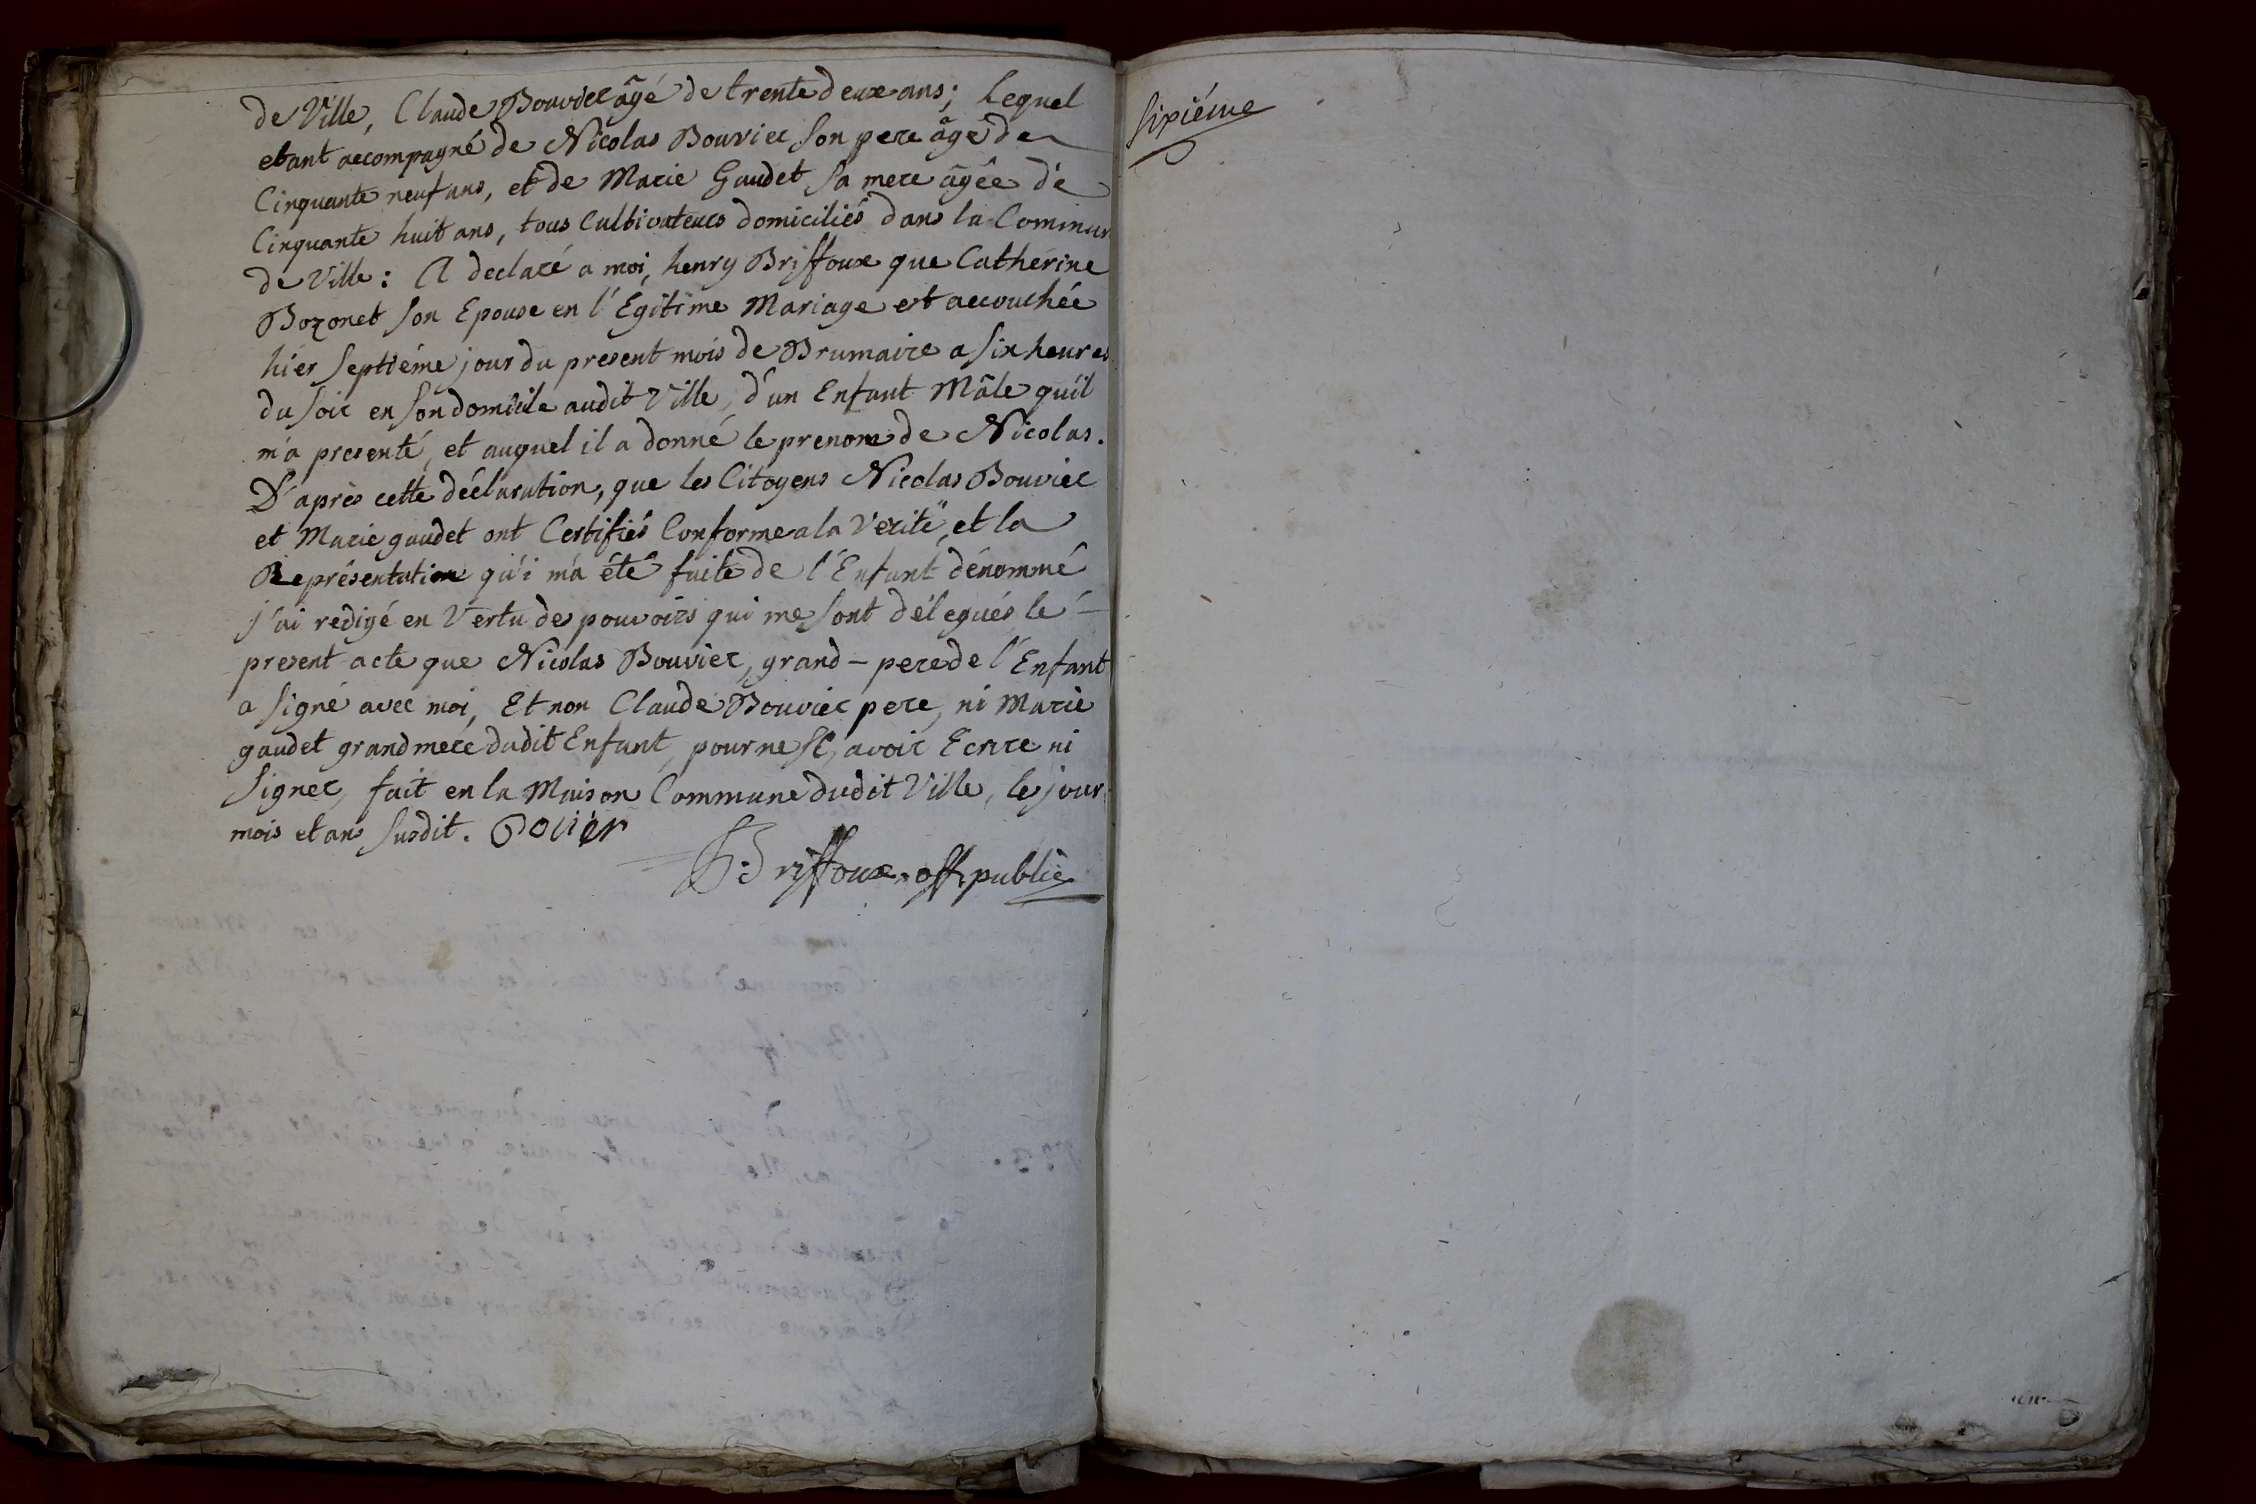 de Ville, Claude Bouvier âgé de trente deux ans; Lequel
etant accompagné de Nicolas Bouvier son pere âgé de
Cinquante neuf ans, et de Marie Gaudet sa mere âgée de
Cinquante huit ans, tous Cultivateurs domiciliés dans la Commun
de Ville: A declaré a moi, henry Briffoux que Catherine
Bozonet son Epouse en l'Egitime Mariage est accouchée
hier septième jour du present mois de Brumaire a six heures
du soir en son domicile audit Ville, d'un Enfant Mâle qu'il
m'a presenté, et auquel il a donné le prenom de Nicolas.
D'après cette déclaration, que les Citoyens Nicolas Bouvier
et Marie gaudet ont Certifiés Conforme a la Verité, et la
Représentation qu'i m'a été faite de l'Enfant dénommé
j'ai redigé en Vertu de pouvoirs qui me sont délegués le
present acte que Nicolas Bouvier, grand-pere de l'Enfant
a signé avec moi, Et non Claude Bouvier pere, ni Marie
gaudet grand mere dudit Enfant, pour ne sçavoir Ecrire ni
signer, fait en la Maison Commune dudit Ville, le jour
mois et ans susdit. Bovier
h: Briffoux, off, public
Sixiéme